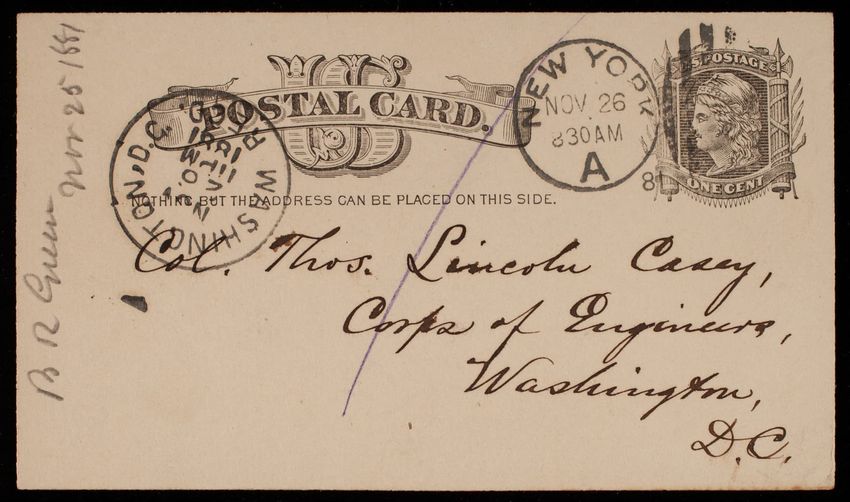 B R Green Nov 25 1881
US
POSTAL CARD.
NEW YORK
NOV 26
830AM
A
U.S. POSTAGE
ONE CENT
WASHINGTON, D.C.
1881
NOTHING BUT THE ADDRESS CAN BE PLACED ON THIS SIDE.
Col. Thos. Lincoln Casey,
Corps of Engineers,
Washington,
D.C.